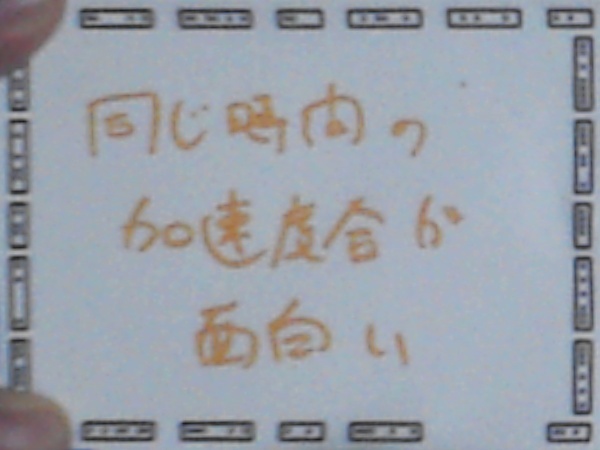 同じ時間の
加速度合が
面白い